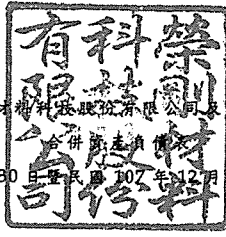 榮剛材料
科技股份
有限公司
材料科技股份有限公司及
合併資產負債表
30日暨民國107年12月